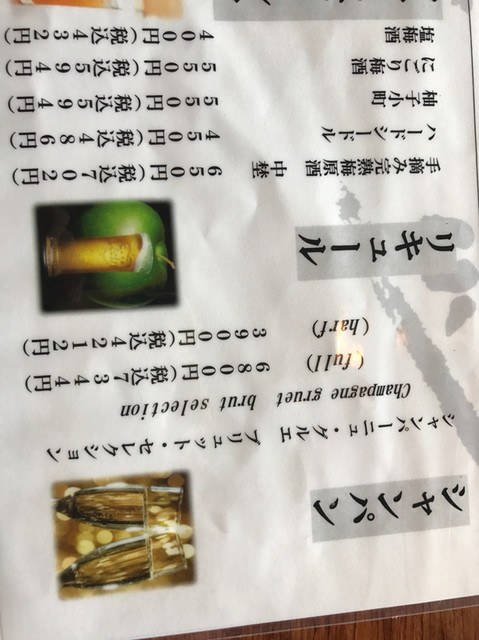 シャンパン
シャンパーニュ・グルエ ブリュット・セレクション
Champagne gruet brut selection
(full) 6800円(税込7344円)
(harf) 3900円(税込4212円)
リキュール
手摘み完熟梅原酒 中埜 650円(税込702円)
ハードシードル 450円(税込486円)
柚子小町 550円(税込594円)
にごり梅酒 550円(税込594円)
塩梅酒 400円(税込432円)